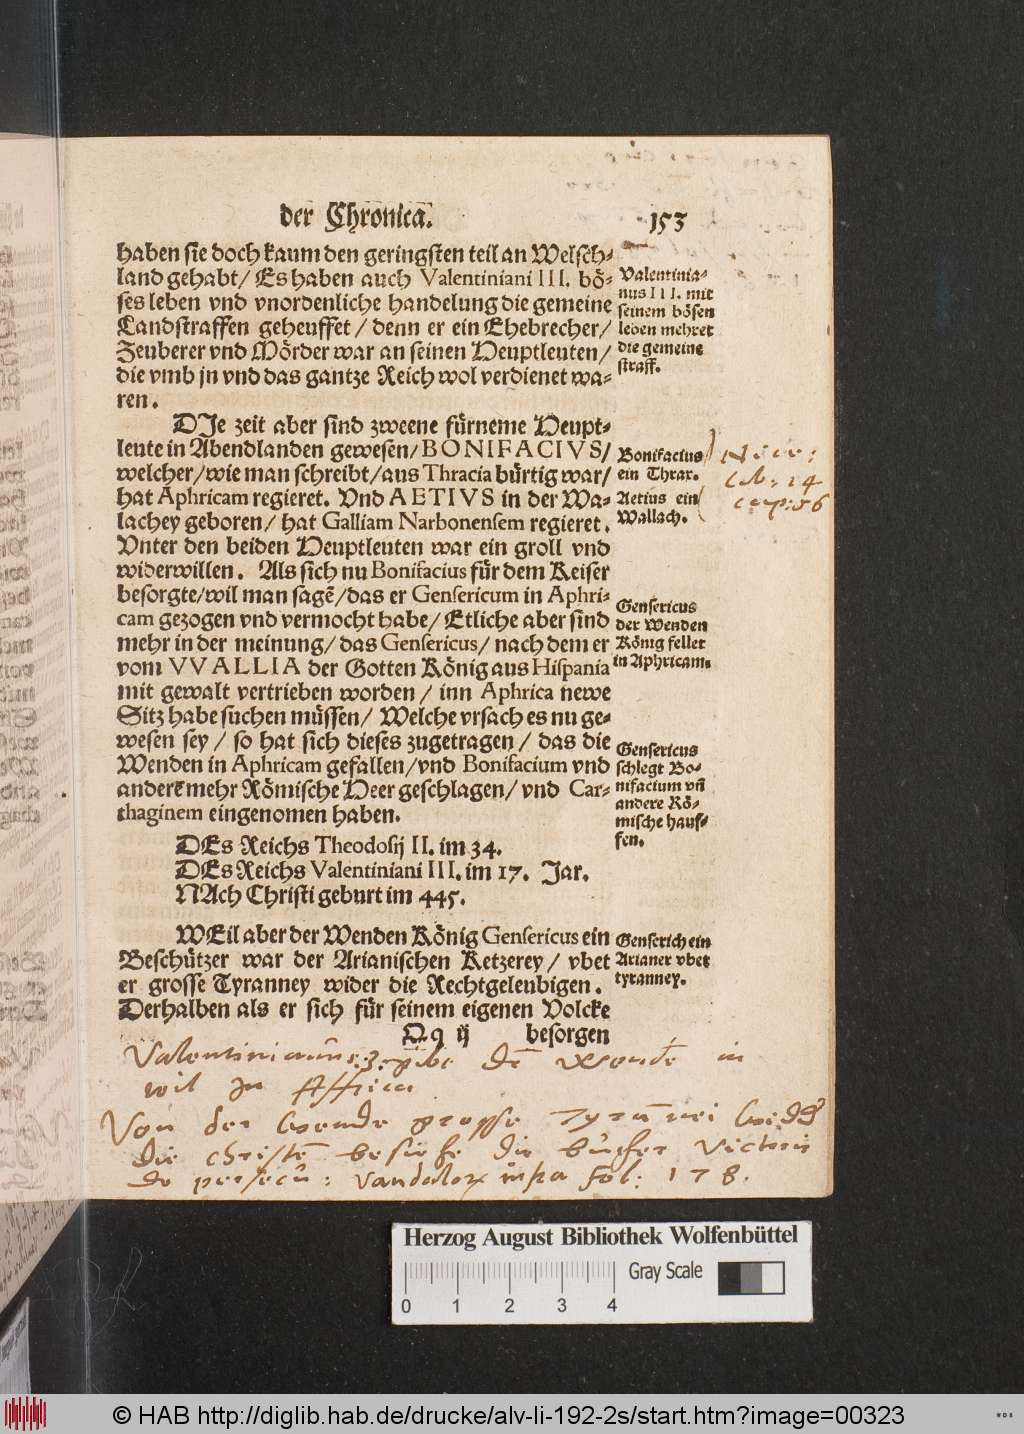 der Chronica. 153
haben sie doch kaum den geringsten teil an Welsch-
land gehabt/ Es haben auch Valentiniani III. bö-
ses leben vnd vnordenliche handelung die gemeine
Landstraffen geheuffet / denn er ein Ehebrecher/
Zeuberer vnd Mörder war an seinen Heuptleuten/
die vmb jn vnd das gantze Reich wol verdienet wa-
ren.
Valentinia-
nus III. mit
seinem bösen
leben mehret
die gemeine
straff.
DJe zeit aber sind zweene fürneme Heupt-
leute in Abendlanden gewesen/ BONIFACIVS/
welcher/wie man schreibt/aus Thracia bürtig war/
hat Aphricam regieret. Vnd AETIVS in der Wa-
lachey geboren/ hat Galliam Narbonensem regieret.
Vnter den beiden Heuptleuten war ein groll vnd
widerwillen. Als sich nu Bonifacius für dem Keiser
besorgte/wil man sagẽ/das er Gensericum in Aphri-
cam gezogen vnd vermocht habe/ Etliche aber sind
mehr in der meinung/das Gensericus/ nach dem er
vom VVALLIA der Gotten König aus Hispania
mit gewalt vertrieben worden / inn Aphrica newe
Sitz habe suchen müssen/ Welche vrsach es nu ge-
wesen sey / so hat sich dieses zugetragen / das die
Wenden in Aphricam gefallen/vnd Bonifacium vnd
andere mehr Römische Heer geschlagen/ vnd Car-
thaginem eingenomen haben.
Bonifacius
ein Thrax.
Aetius ein
Wallach.
lib: 14
cap: 56
Gensericus
der Wenden
König fellet
in Aphricam.
Gensericus
schlegt Bo-
nifacium vñ
andere Rö-
mische hauf-
fen.
DEs Reichs Theodosij II. im 34.
DEs Reichs Valentiniani III. im 17. Jar.
NAch Christi geburt im 445.
WEil aber der Wenden König Gensericus ein
Beschützer war der Arianischen Ketzerey / vbet
er grosse Tyranney wider die Rechtgleubigen.
Derhalben als er sich für seinem eigenen Volcke
Qq ij besorgen
Genserich ein
Arianer vbet
tyranney.
Valentinianus 3. gibt in
wil in Affrica
Von der Wende grosse Tyrannei
die christẽ besiehe die bücher Victoris
de persecu: Vandalor infra fol: 178.
Herzog August Bibliothek Wolfenbüttel
Gray Scale
0 1 2 3 4
© HAB http://diglib.hab.de/drucke/alv-li-192-2s/start.htm?image=00323